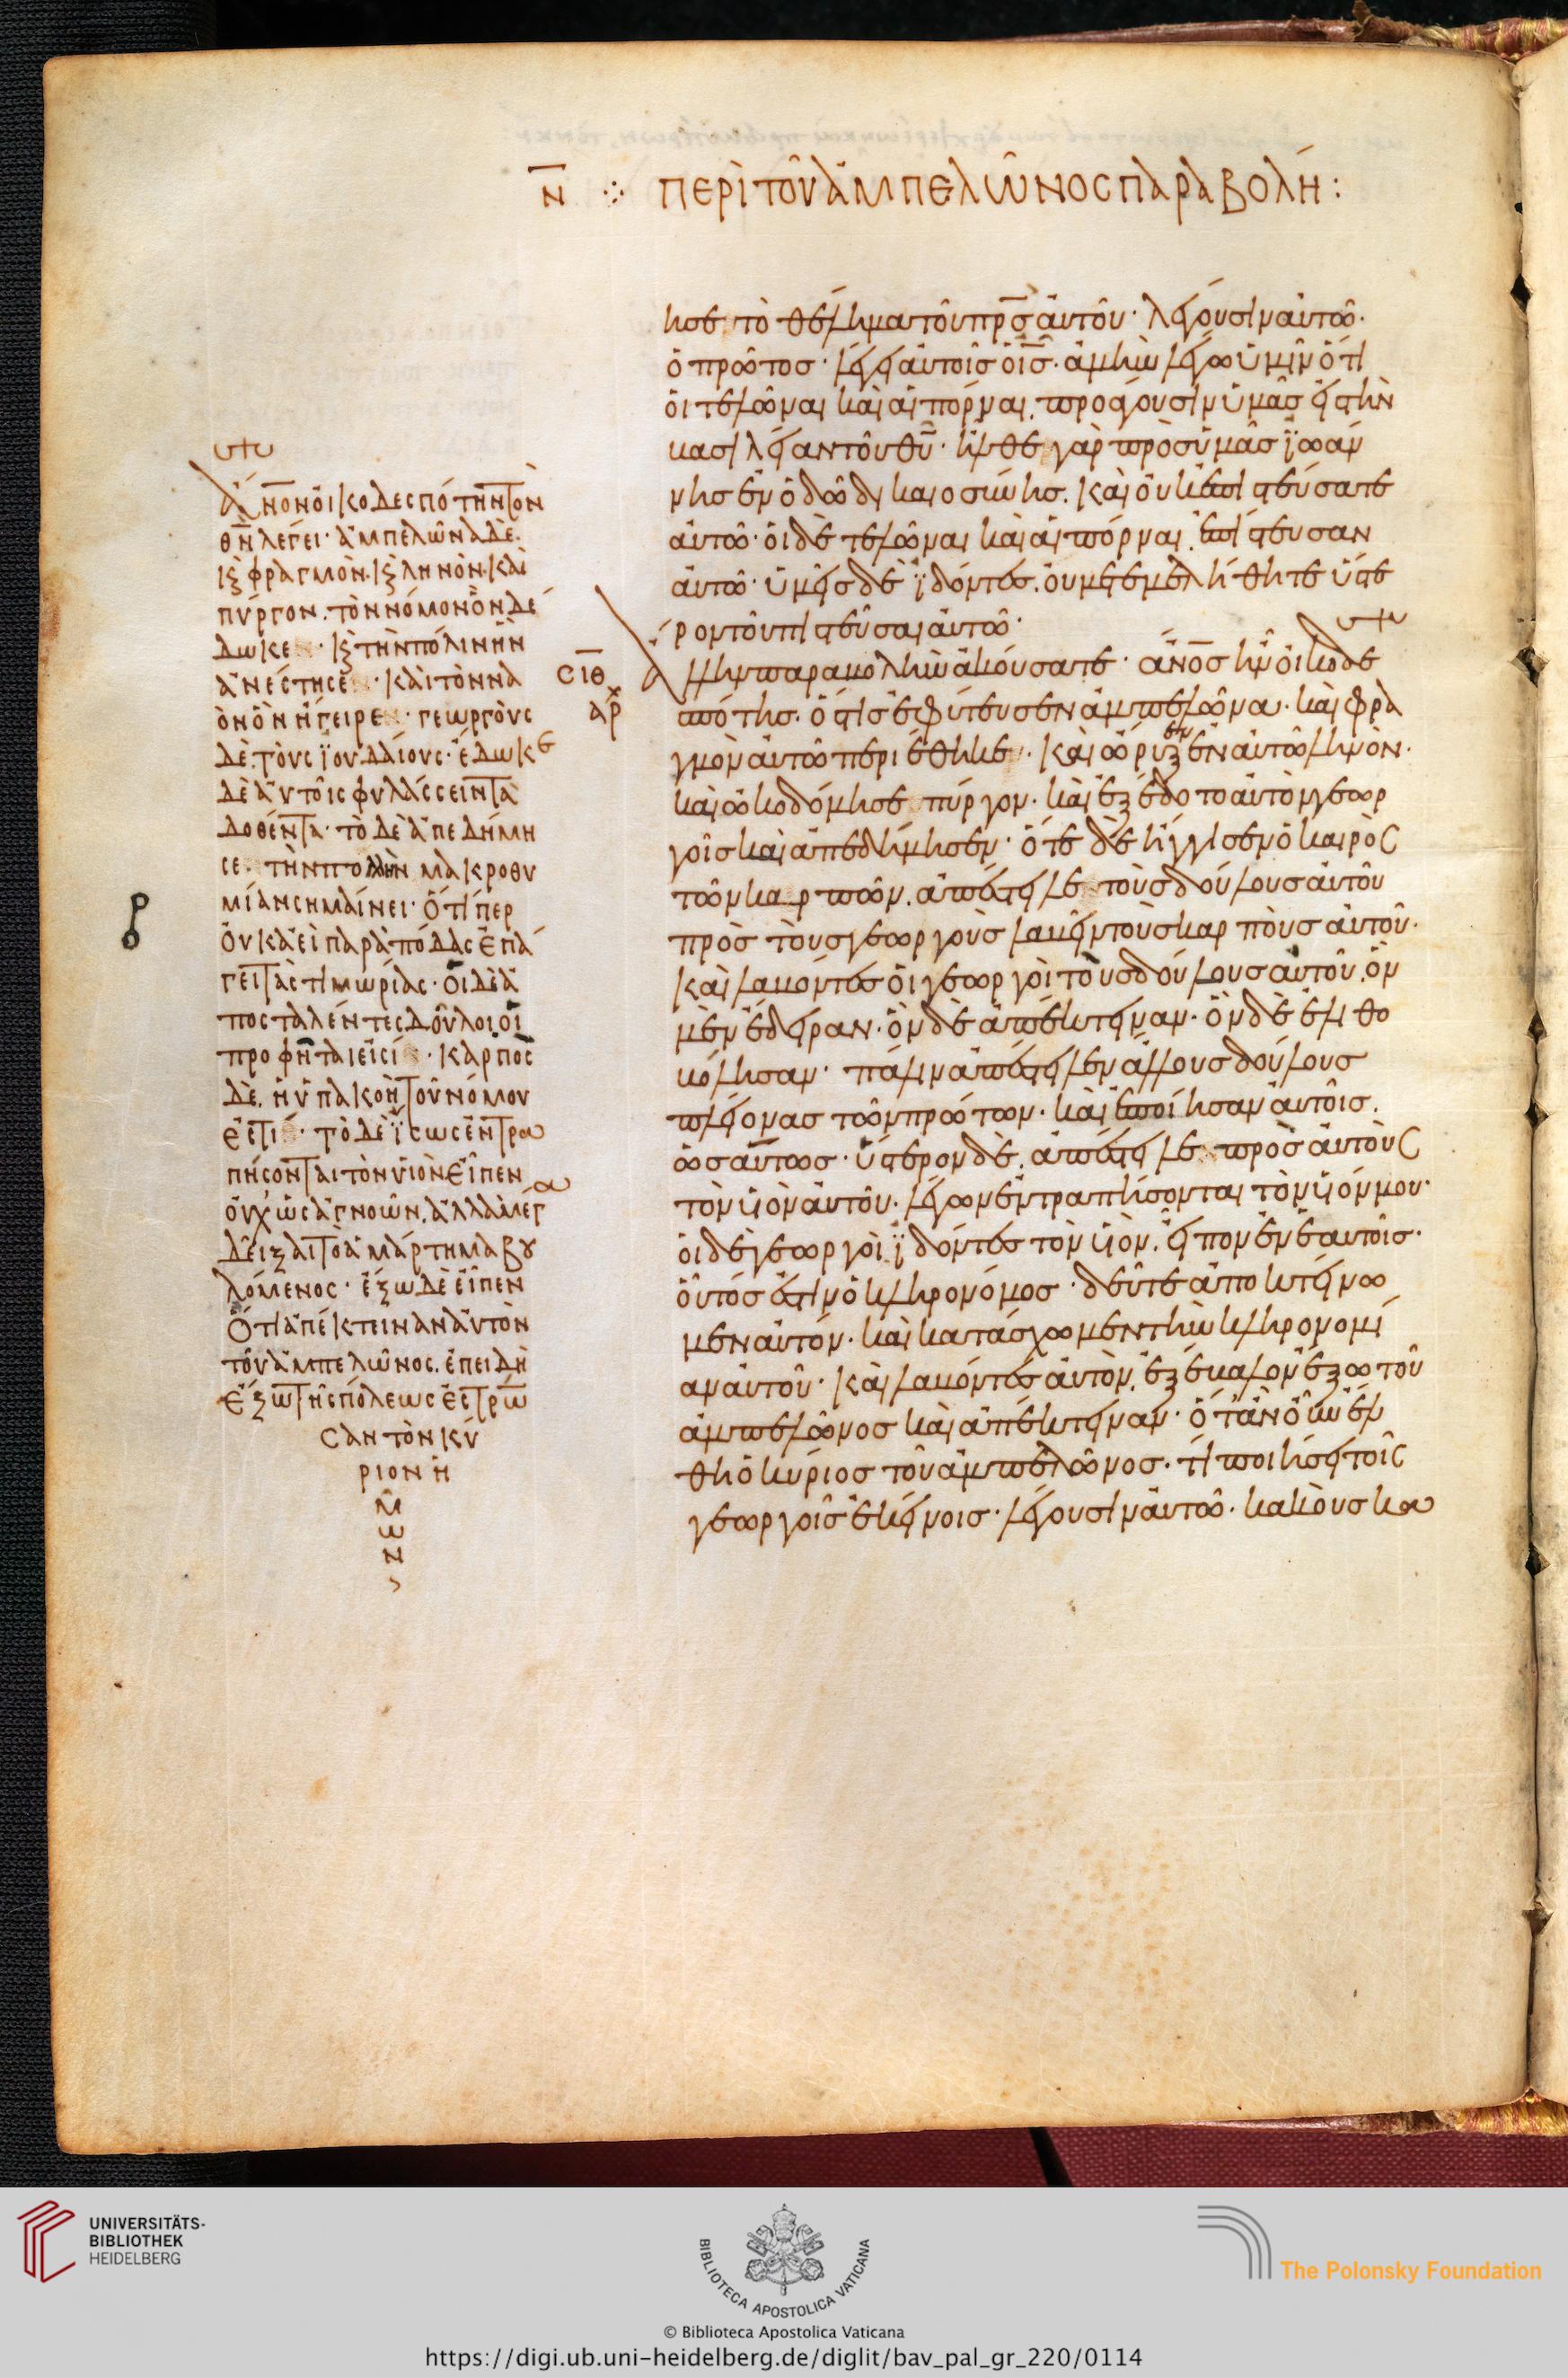 Ν ⁘ ΠΕΡῚ ΤΟΥ͂ ἈΜΠΕΛΩ͂ΝΟΣ ΠΑΡΑΒΟΛΉ:
ησε τὸ θέλημα τοῦ πρ̅ς αὐτοῦ· λέγουσιν αὐτῶ·
ὁ πρῶτος· λέγει αὐτοῖς ὁ ι̅ς· ἀμὴν λέγω ὑμῖν ὅτι
οἱ τελῶναι καὶ αἱ πόρναι, προάγουσιν ὑμᾶς εἰς τὴν
βασιλείαν τοῦ θ̅υ· ἦλθε γὰρ πρὸς ὑμᾶς ϊωάν
νης ἐν ὁδῶ δικαιοσύνης. καὶ οὐκ ἐπιστεύσατε
αὐτῶ· οἱ δὲ τελῶναι καὶ αἱ πόρναι, ἐπίστευσαν
αὐτῶ· ὑμεῖς δὲ ϊδόντες. οὐ μετεμελήθητε ὕστε
ρον τοῦ πιστεῦσαι αὐτῶ·
ἄλλην παραβολὴν ἀκούσατε· ἀν̅ος ἦν οἰκοδε
σπότης. ὅστις ἐφύτευσεν ἀμπελῶνα· καὶ φρα
γμὸν αὐτῶ περιέθηκε· καὶ ὤρυξεν ἐν αὐτῶ ληνὸν·
καὶ ὠκοδόμησε πύργον· καὶ ἐξέδοτο αὐτὸν γεωρ
γοῖς καὶ ἀπεδήμησεν· ὅτε δὲ ἤγγισεν ὁ καιρὸς
τῶν καρπῶν. ἀπέστειλε τοὺς δούλους αὐτοῦ
πρὸς τοὺς γεωργοὺς λαβεῖν τοὺς καρποὺς αὐτοῦ·
καὶ λαβόντες οἱ γεωργοὶ τοὺς δούλους αὐτοῦ. ὃν
μὲν ἔδειραν· ὃν δὲ ἀπέκτειναν· ὃν δὲ ἐλιθο
βόλησαν· πάλιν ἀπέστειλεν ἄλλους δούλους
πλείονας τῶν πρώτων· καὶ ἐποίησαν αὐτοῖς.
ὡσαύτως· ὕστερον δὲ, ἀπέστειλε πρὸς αὐτοὺς
τὸν υἱὸν αὐτοῦ· λέγων ἐντραπήσονται τὸν υἱόν μου·
οἱ δὲ γεωργοὶ ϊδόντες τὸν υἱὸν. εἶπον ἐν ἑαυτοῖς·
οὗτός ἐστιν ὁ κληρονόμος· δεῦτε ἀποκτείνω
μεν αὐτόν· καὶ κατάσχωμεν τὴν κληρονομί
αν αὐτοῦ· καὶ λαβόντες αὐτὸν, ἐξέβαλον ἔξω τοῦ
ἀμπελῶνος καὶ ἀπέκτειναν· ὅταν οὖν ἔλ
θη ὁ κύριος τοῦ ἀμπελῶνος· τί ποιήσει τοῖς
γεωργοῖς ἐκείνοις· λέγουσιν αὐτῶ· κακοὺς κα
ἄν̅ον οἰκοδεσπότην τὸν
θ̅ν λέγει· ἀμπελῶνα δὲ.
κ φραγμὸν· κ ληνὸν· καὶ
πύργον. τὸν νόμον ὃν δέ
δωκε· κ τὴν πόλιν ἣν
ἀνέστησε· καὶ τὸν να
ὸν ὃν ἤγειρε· γεωργοὺς
δὲ. τοὺς ϊουδαίους· ἔδωκε
δὲ αὐτοῖς φυλάσσειν τὰ
δοθέντα· τὸ δὲ ἀπεδήμη
σε. τὴν πολλὴν μακροθυ
μίαν σημαίνει· ὅτίπερ
οὐκ ἀεὶ παρὰ πόδας ἐπά
γει τὰς τιμωρίας· οἱ δὲ ἀ
ποσταλέντες δοῦλοι οἱ
προφῆται εἰσί· καρπὸς
δὲ. ἡ ὑπακοὴ τοῦ νόμου
ἐστί· τὸ δὲ ϊσως ἐντρα
πήσονται τὸν υἱὸν εἶπεν
οὐχ ὡς ἀγνοῶν, ἀλλὰ μέγα
δεῖξαι τὸ ἁμάρτημα βου
λόμενος· ἔξω δὲ εἶπεν
ὅτι ἀπέκτειναν αὐτὸν
τοῦ ἀμπελῶνος. ἐπειδὴ
ἔξω τῆς πόλεως ἐσταύρω
σαν τὸν κύ
ριον ἡ
μ
ω
ν
σιθ
UNIVERSITÄTS-
BIBLIOTHEK
HEIDELBERG
BIBLIOTECA APOSTOLICA VATICANA
© Biblioteca Apostolica Vaticana
The Polonsky Foundation
https://digi.ub.uni-heidelberg.de/diglit/bav_pal_gr_220/0114